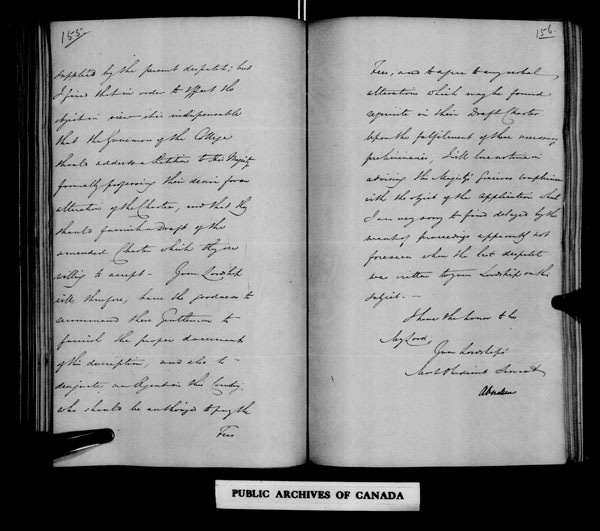 155
supplied by the present despatch; but
I find that in order to effect the
object in view it is indispensable
that the Governors of the College
should address a Petition to His Majesty
formally professing their desire for an
alteration of the Charter, and that they
should furnish a Draft of the
amended Charter which they are
willing to accept. Your Lordship
will therefore, have the goodness to
recommend these Gentlemen to
furnish the proper document
of this description, and also to
designate an Agent in this Country,
who should be authorized to pay the
Fees
156
Fees, and to agree to any verbal
alteration which may be found
requisite in their Draft Charter.
Upon the fulfilment of these necessary
preliminaries, I will lose no time in
advising His Majesty's gracious compliance
with the object of the application which
I am very sorry to find delayed by the
want of proceedings apparently not
foreseen when the last despatch
was written to your Lordship on the
subject. —
I have the honor to be
My Lord,
Your Lordship's
Most Obedient Servant
Aberdeen
PUBLIC ARCHIVES OF CANADA